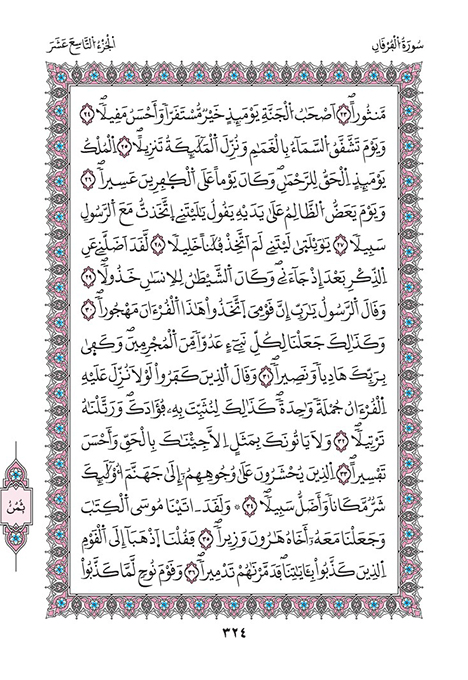 سُورَةُ الْفُرْقَانِ
الْجُزْءُ التَّاسِعَ عَشَرَ
مَّنثُوراً ٢٣ اَصْحَٰبُ الْجَنَّةِ يَوْمَئِذٍ خَيْرٌ مُّسْتَقَرّاً وَأَحْسَنُ مَقِيلاً ٢٤
وَيَوْمَ تَشَّقَّقُ السَّمَآءُ بِالْغَمَٰمِ وَنُزِّلَ الْمَلَٰٓئِكَةُ تَنزِيلاً ٢٥ اَلْمُلْكُ
يَوْمَئِذٍ اِلْحَقُّ لِلرَّحْمَٰنِ وَكَانَ يَوْماً عَلَى الْكَٰفِرِينَ عَسِيراً ٢٦
وَيَوْمَ يَعَضُّ الظَّالِمُ عَلَىٰ يَدَيْهِ يَقُولُ يَٰلَيْتَنِے اِتَّخَذتُّ مَعَ الرَّسُولِ
سَبِيلاً ٢٧ يَٰوَيْلَتَىٰ لَيْتَنِے لَمَ اَتَّخِذْ فُلَٰناً خَلِيلاً ٢٨ لَّقَدَ اَضَلَّنِے عَنِ
اِلذِّكْرِ بَعْدَ إِذْ جَآءَنِے وَكَانَ الشَّيْطَٰنُ لِلِانسَٰنِ خَذُولاً ٢٩
وَقَالَ الرَّسُولُ يَٰرَبِّ إِنَّ قَوْمِيَ اَتَّخَذُواْ هَٰذَا الْقُرْءَانَ مَهْجُوراً ٣٠
وَكَذَٰلِكَ جَعَلْنَا لِكُلِّ نَبِےٓءٍ عَدُوّاً مِّنَ الْمُجْرِمِينَ وَكَفَىٰ
بِرَبِّكَ هَادِياً وَنَصِيراً ٣١ وَقَالَ الذِينَ كَفَرُواْ لَوْلَا نُزِّلَ عَلَيْهِ
الْقُرْءَانُ جُمْلَةً وَٰحِدَةً كَذَٰلِكَ لِنُثَبِّتَ بِهِۦ فُؤَادَكَ وَرَتَّلْنَٰهُ
تَرْتِيلاً ٣٢ وَلَا يَاتُونَكَ بِمَثَلٍ اِلَّا جِئْنَٰكَ بِالْحَقِّ وَأَحْسَنَ
تَفْسِيراً ٣٣ اِلذِينَ يُحْشَرُونَ عَلَىٰ وُجُوهِهِمُۥٓ إِلَىٰ جَهَنَّمَ أُوْلَٰٓئِكَ
شَرٌّ مَّكَاناً وَأَضَلُّ سَبِيلاً ٣٤ ۞ وَلَقَدَ اٰتَيْنَا مُوسَى الْكِتَٰبَ
وَجَعَلْنَا مَعَهُۥٓ أَخَاهُ هَٰرُونَ وَزِيراً ٣٥ فَقُلْنَا اَذْهَبَآ إِلَى الْقَوْمِ
الذِينَ كَذَّبُواْ بِـَٔايَٰتِنَا فَدَمَّرْنَٰهُمْ تَدْمِيراً ٣٦ وَقَوْمَ نُوحٍ لَّمَّا كَذَّبُواْ
ثُمُنُ
٣٢٤